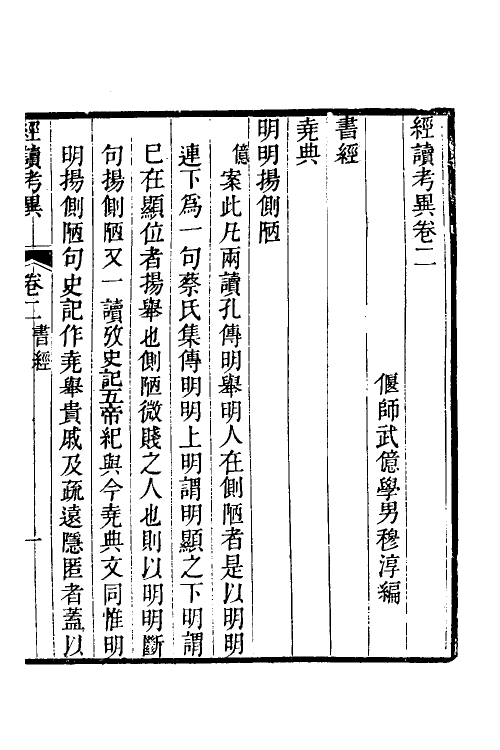 經讀考異卷二
偃師武億學男穆淳編
書經
堯典
明明揚側陋
億案此凡兩讀孔傳明舉明人在側陋者是以明明
連下爲一句蔡氏集傳明明上明謂明顯之下明謂
已在顯位者揚舉也側陋微賤之人也則以明明斷
句揚側陋又一讀攷史記五帝紀與今堯典文同惟明
明揚側陋句史記作堯舉貴戚及疏遠隱匿者蓋以
經讀考異 卷二書經 一